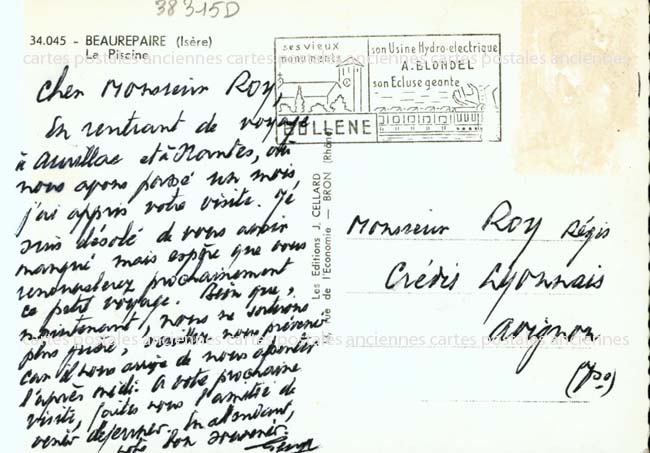 38315D
34.045 - BEAUREPAIRE (Isère)
La Piscine
ses vieux
monuments
son Usine Hydro-electrique
A. BLONDEL
son Ecluse geante
BOLLENE
cartes postales anciennes cartes postales anciennes cartes postales anciennes
Cher Monsieur Roy,
En rentrant de voyage
à Aurillac et à Nantes, où
nous avons passé un mois
j'ai appris votre visite. Je
suis désolé de vous avoir
manqué mais espère que vous
renouvelerez prochainement
ce petit voyage. Bien que,
maintenant, nous ne sortions
plus guère, veuillez nous prévenir
car il nous arrive de nous absenter
l'après midi. A votre prochaine
visite, faites nous l'amitié de
venir déjeuner. En attendant,
bon souvenir.
Les Editions J. CELLARD
rue de l'Economie — BRON (Rhône)
Monsieur Roy Régis
Crédit Lyonnais
Avignon
cartes postales anciennes cartes postales anciennes cartes postales anciennes